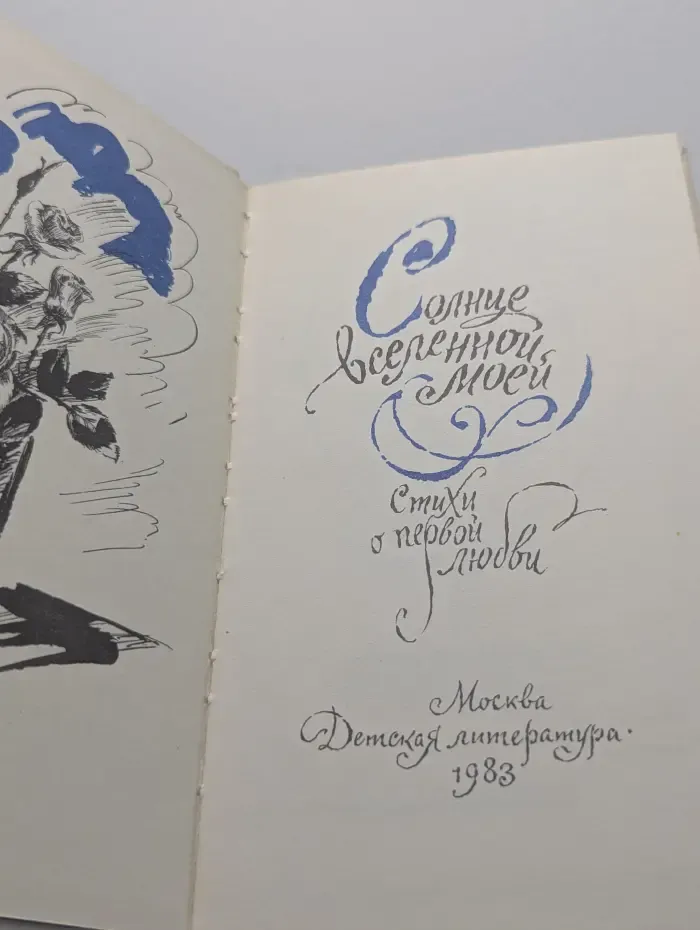 Солнце
вселенной
моей
Стихи
о первой
любви
Москва
Детская литература·
1983